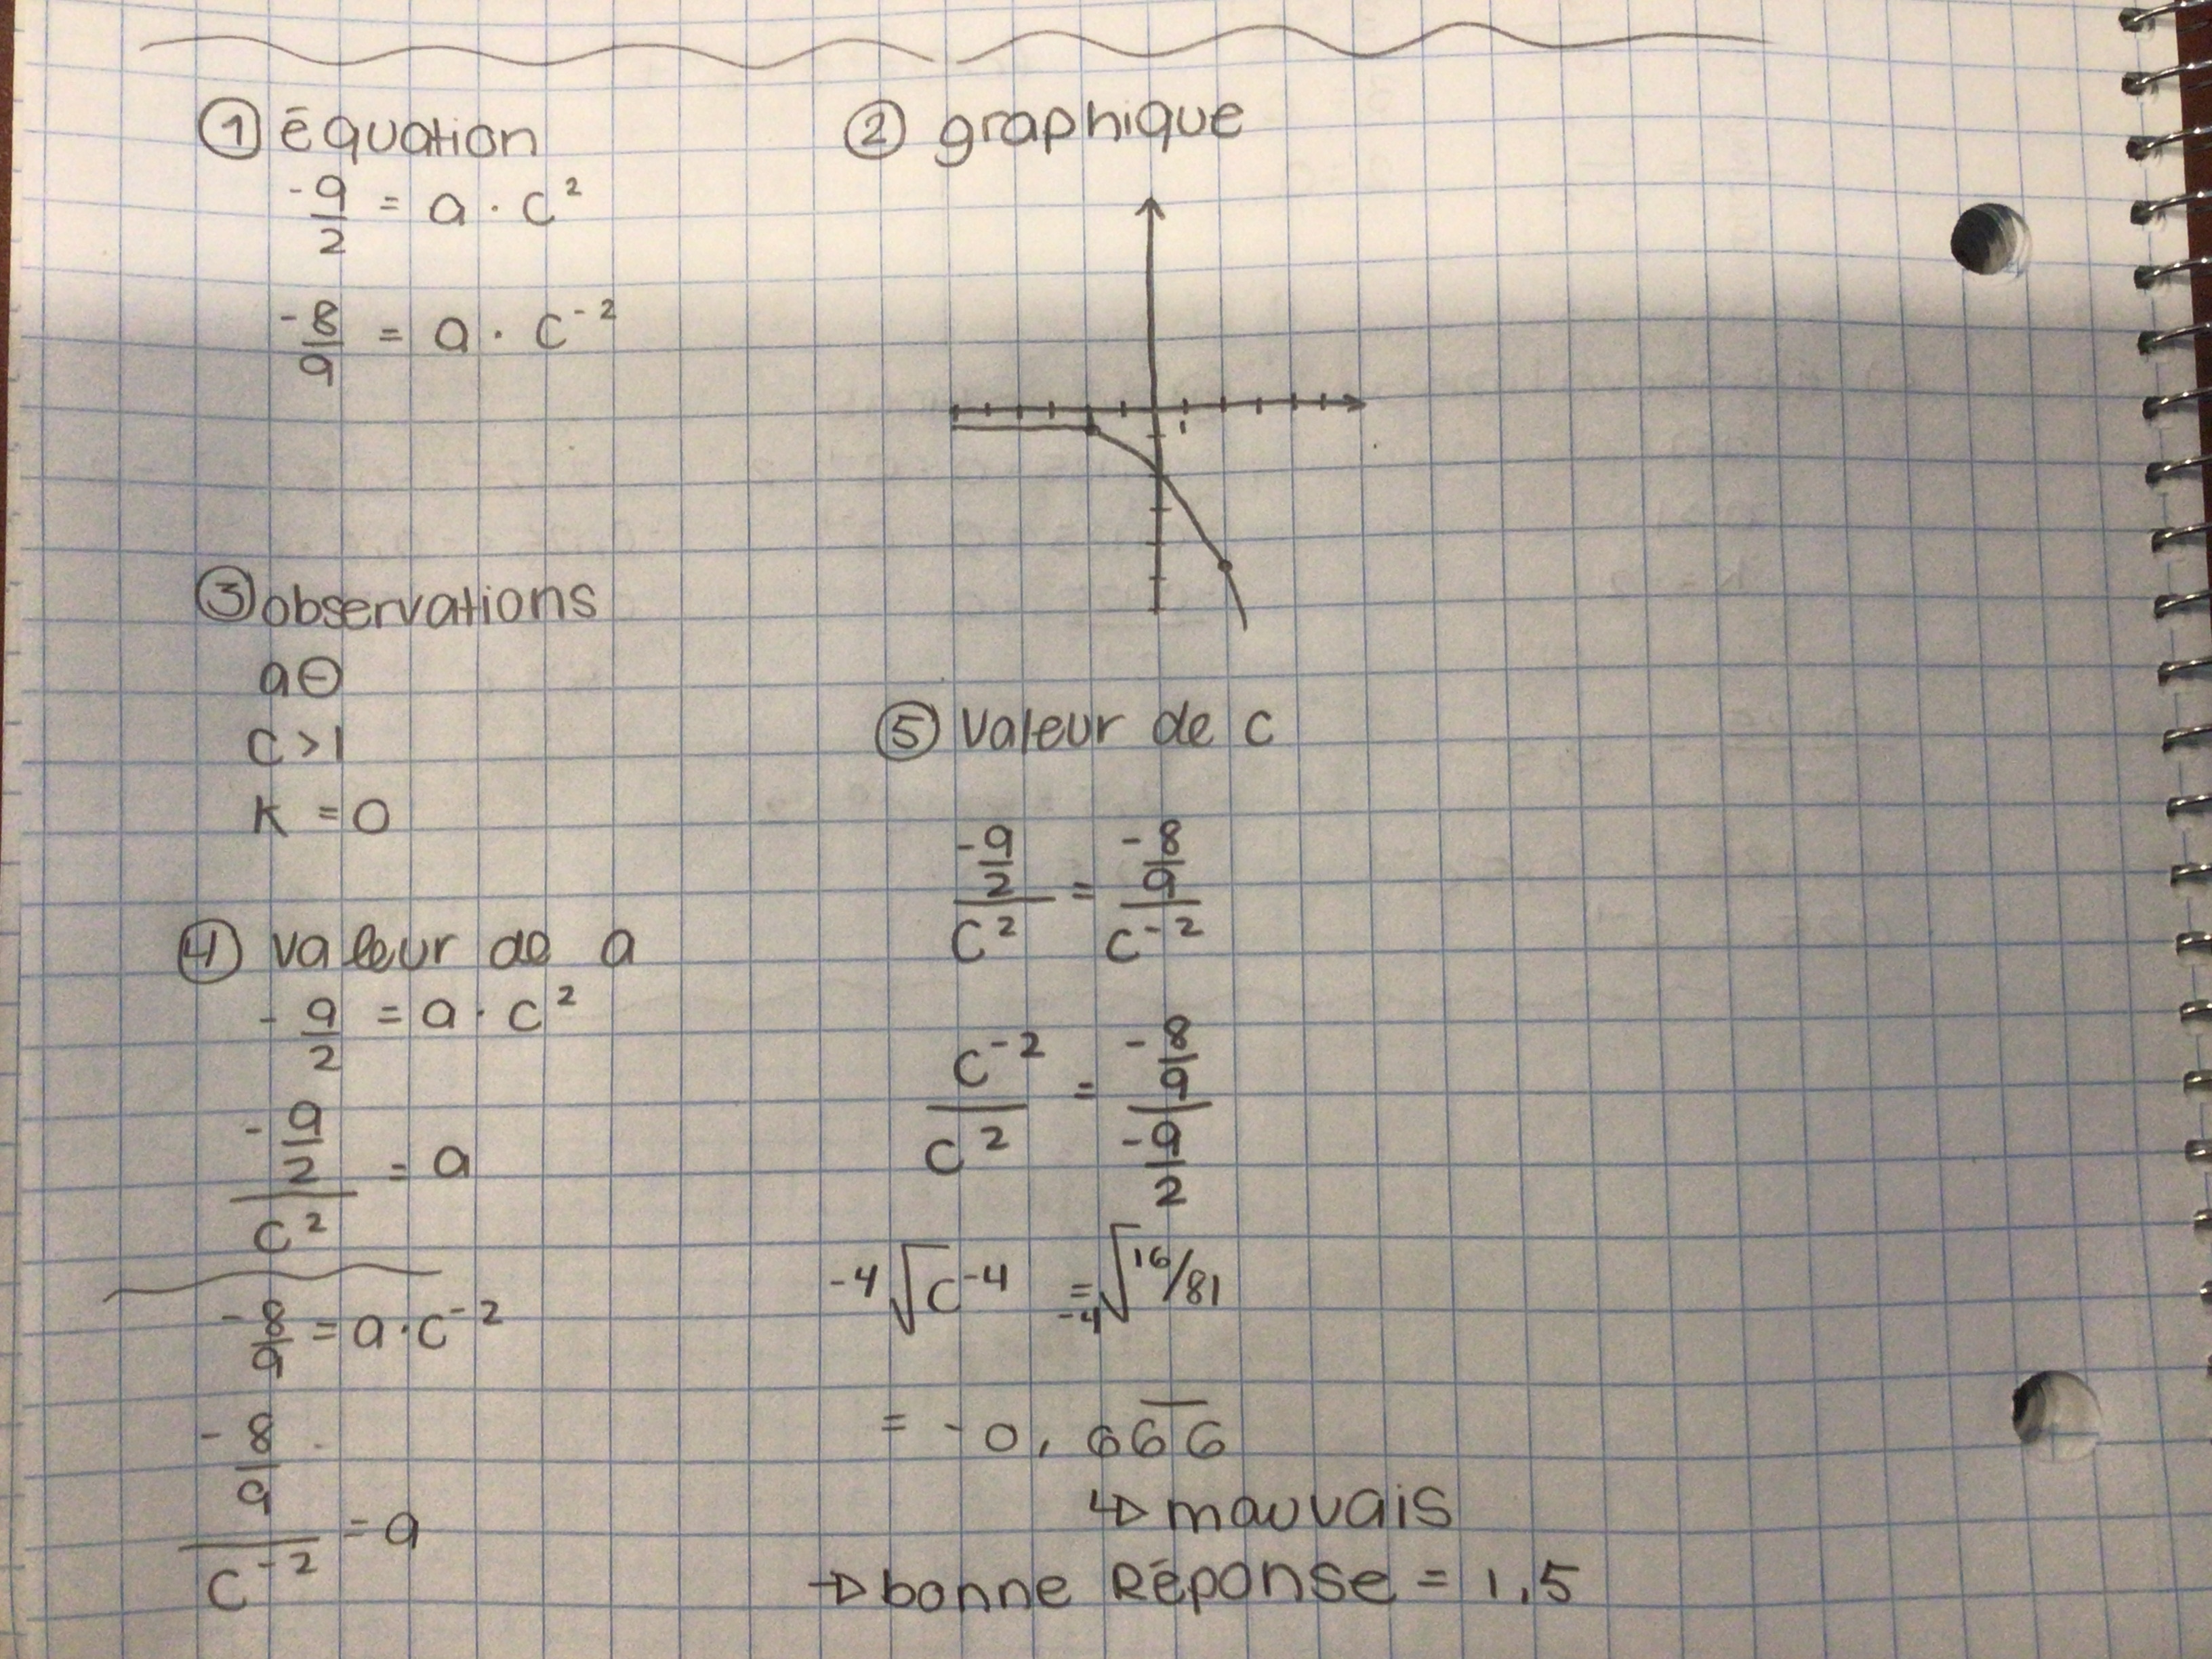 ① équation
-9/2 = a · c²
-8/9 = a · c⁻²
② graphique
③ observations
a ⊖
c > 1
k = 0
④ valeur de a
-9/2 = a · c²
(-9/2)/c² = a
-8/9 = a · c⁻²
(-8/9)/c⁻² = a
⑤ valeur de c
(-9/2)/c² = (-8/9)/c⁻²
c⁻²/c² = (-8/9)/(-9/2)
⁻⁴√c⁻⁴ = ⁻⁴√16/81
= -0,66̅6̅
↳ mauvais
→ bonne Réponse = 1,5